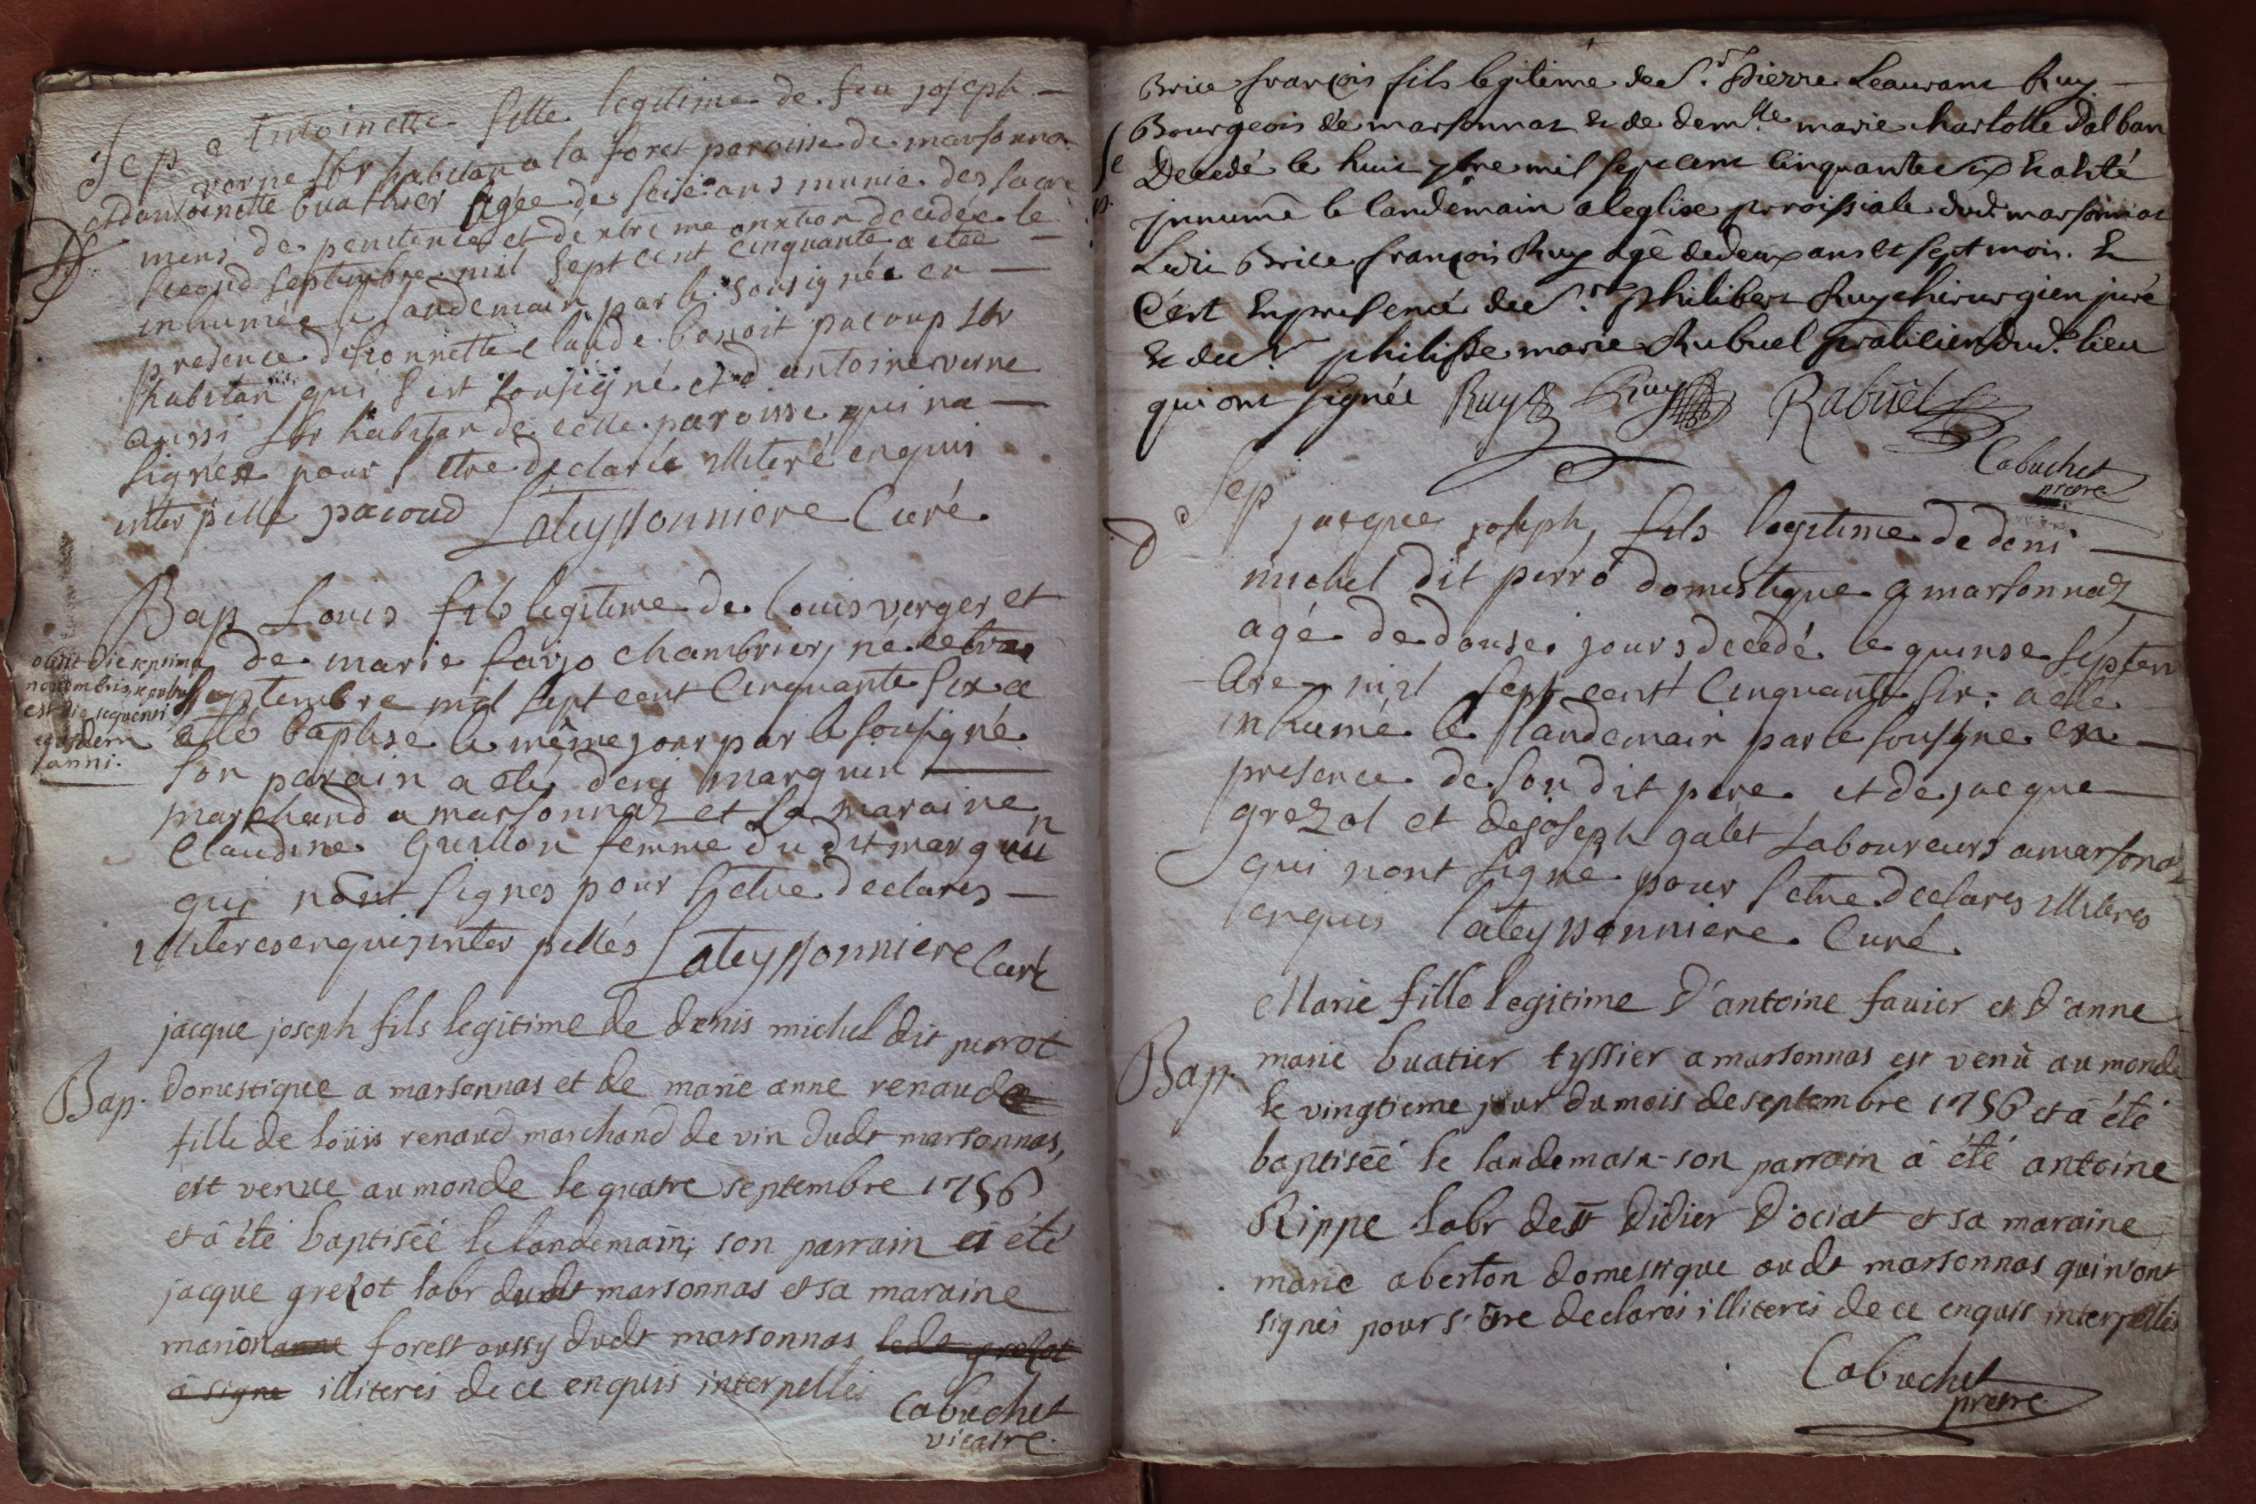 Sep Antoinette fille legitime de feu joseph
verne lbr habitan a la forest paroisse de marsonna
et dantoinette buathier agée de seise ans munie des sacre
mens de penitence et dextreme onxtion decedée le
second septembre mil sept cent cinquante a etée
inhumée le landemain par le sousigné en
presence dhonnette claude benoit pacoup lbr
habitan qui s'est sousigné et d antoine verne
aussi lbr habitan de cette paroisse qui na
signés pour s etre declaré illiteré enquis
interpellé pacoud Lateyssonniere Curé
Bap Louis fils legitime de louis verger et
de marie farjo chambrier, ne le
septembre mil sept cent cinquante six a
été baptise le même jour par le sousigné
son parain a eté deni marguin
marchand a marsonnaz et la maraine
Claudine Guillon femme du dit marguin
qui n'ont signes pour s etre declares
illiteres enquis inter pellés Lateyssonniere Curé
obiit die septima
novembris
est die sequenti
ejusdem
anni.
jacque joseph fils legitime de denis michel dit perrot
Bap. domestique a marsonnas et de marie anne renaud
fille de loüis renaud marchand de vin dudt marsonnas,
est venue au monde le quatre septembre 1756
et â été baptiséé le landemain; son parrain a été
jacque grezot labr dudt marsonnas et sa maraine
marion anne forest aussy dudt marsonnas ledt grezot
a signe illiterés de ce enquis interpellés
Cabuchet
vicaire.
Brice françois fils legitime de Sr. Pierre Leaurant Ruy
Bourgeois de marsonnaz & de demlle marie charlotte Dalban
Decedé le huit 7bre mil sept cent cinquante six & a été
jnnumé le landemain a leglise paroissiale dud. marsonnaz
Ledit Brice françois Ruy agé de deux ans et sept mois. &
C'est en presence de Sr. philibert Ruy chirurgien juré
& de Sr. philippe marie Rabuel praticien dud. lieu
qui ont signée Ruy Ruy Rabuel
Cabuchet
pretre
Sep jacque joseph, fils legitime de deni
michel dit perró domestique a marsonnaz
agé de douse jours decedé le quinse septem
bre mil sept cent cinquante six: a été
inhumé le landemain par le sousigne en
presence de son dit pere et de jacque
grezol et de joseph galet laboureurs a marsonaz
qui n'ont signé pour s etre declares illiteres
enquis lateyssonniere. Curé.
Marie fille legitime d'antoine favier et d'anne
Bap. marie buatier tyssier a marsonnas est venü au monde
le vingtieme jour du mois de septembre 1756 et â été
baptiséé le landemain son parrain â été antoine
Rippe labr de st didier d'ociat et sa maraine
marie aberton domestique audt marsonnas qui n'ont
signés pour s'être declarés illiterés de ce enquis interpellés
Cabuchet
pretre